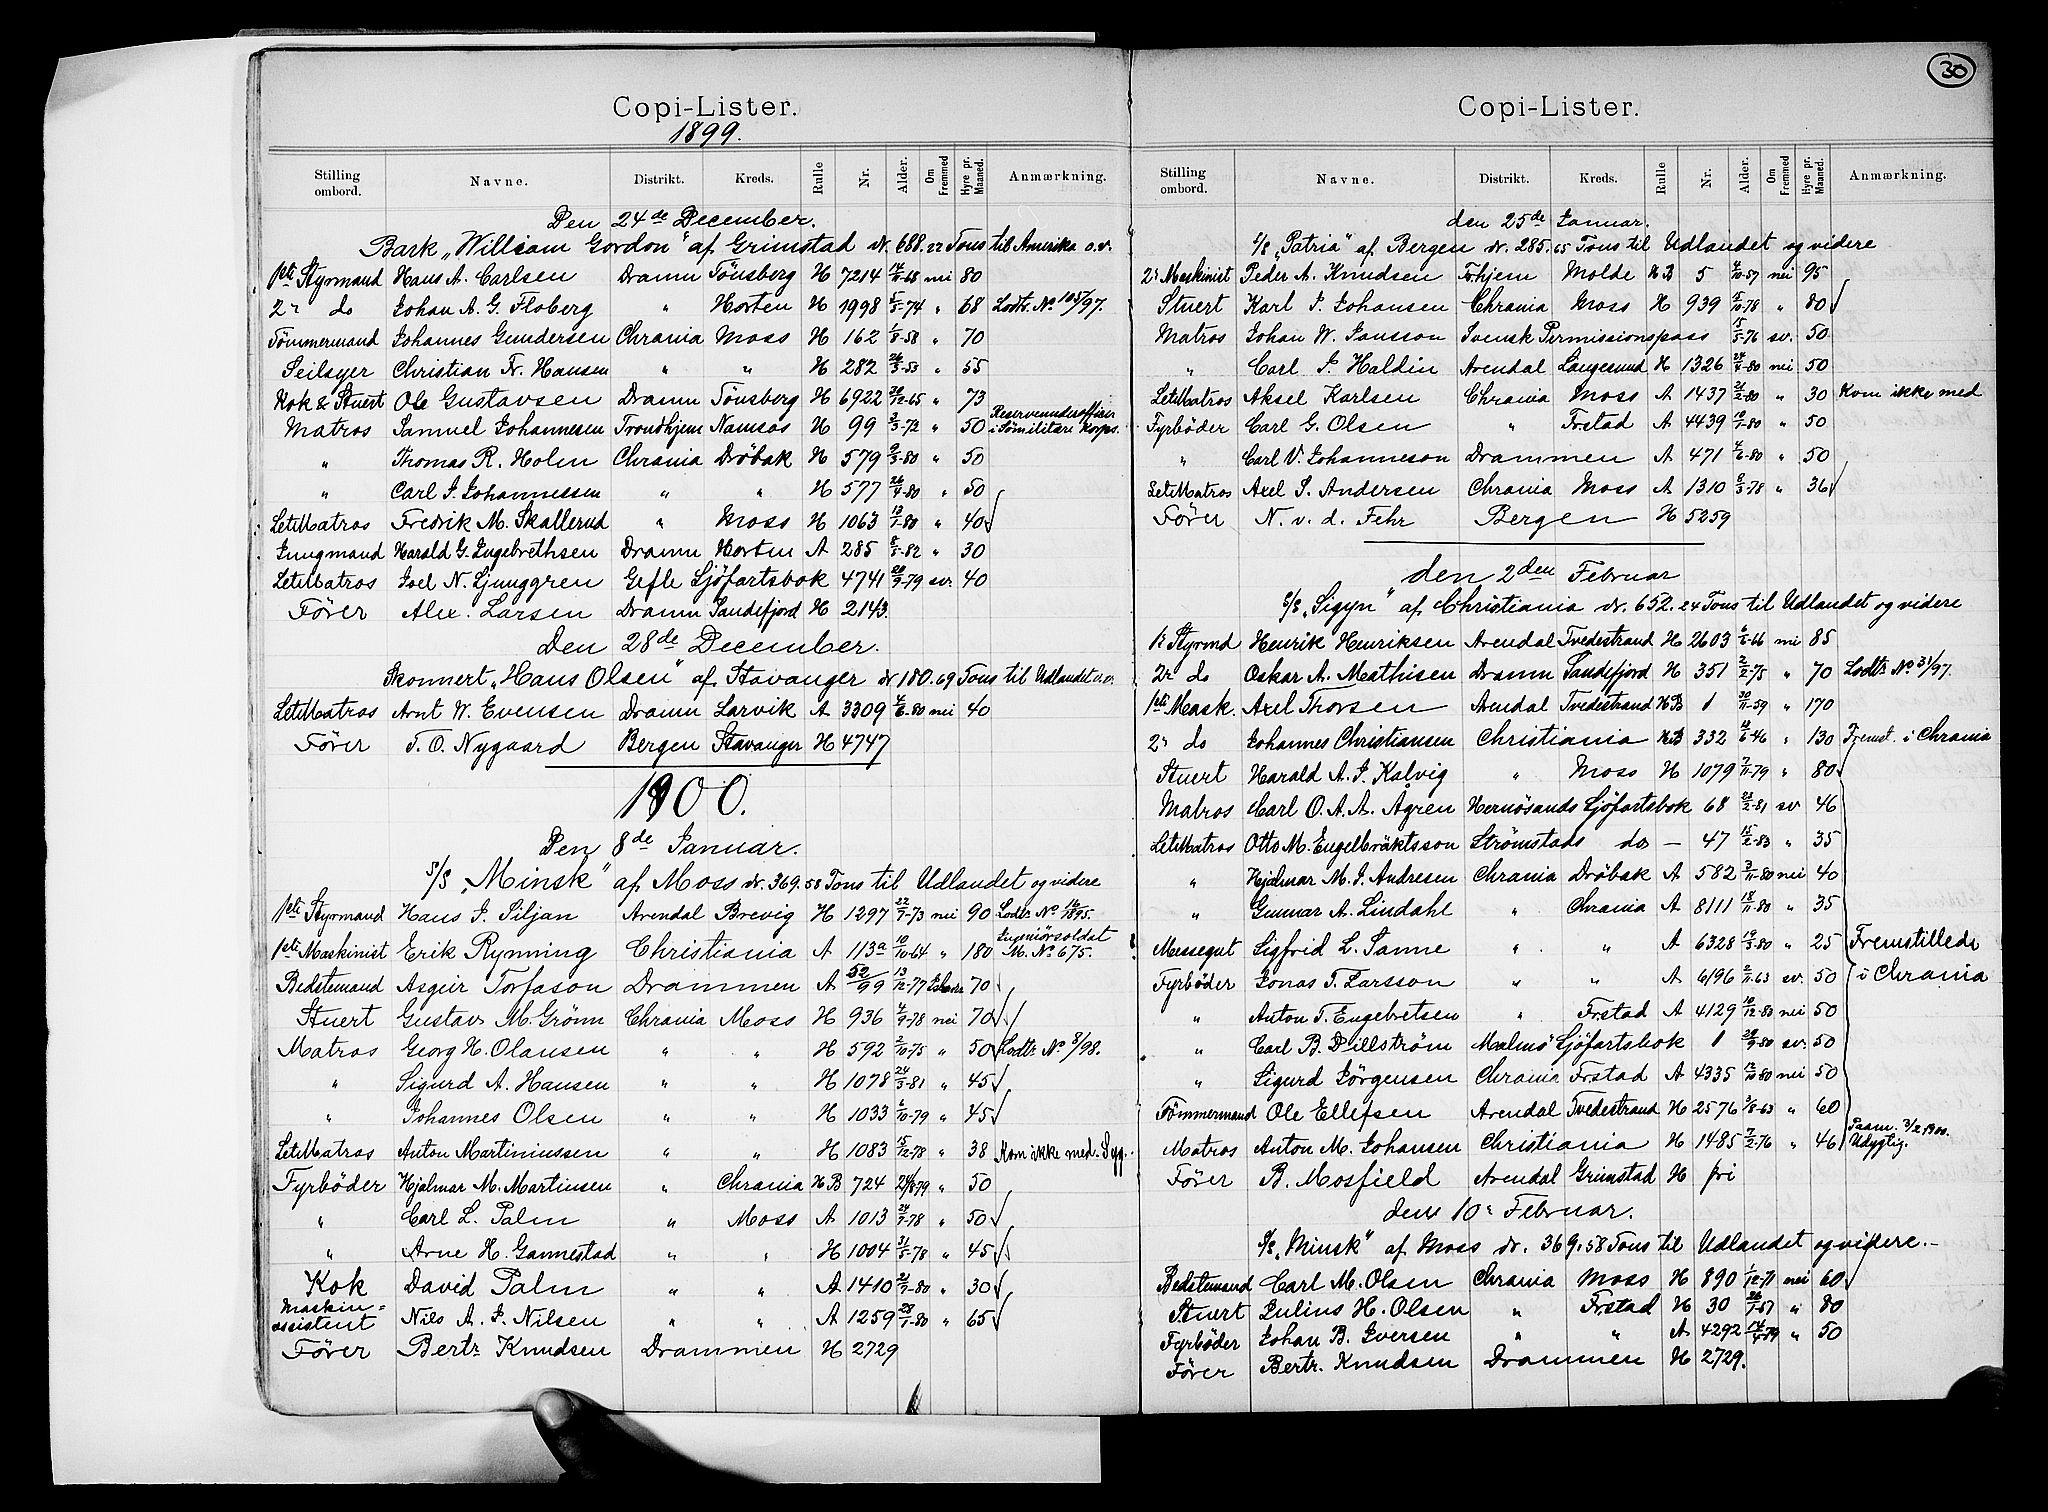 Copi-Lister.
1899.
Stilling ombord. Navne. Distrikt. Kreds. Rulle Nr. Alder. Om Fremmed Hyre pr. Maaned. Anmærkning.
Den 24de December.
Bark "William Gordon" af Grimstad dr. 688.22 Tons til Amerika o.v.
1ste Styrmand Hans A. Carlsen Dramn Tönsberg H 7214 nei 80
2r do Johan A. G. Floberg " Horten H 1998 5/5-74 " 68 Lodtr. No 105/97.
Tömmermand Johannes Gundersen Chrania Moss H 162 1/8-58 " 70
Seilsyer Christian Fr. Hansen " " H 282 26/3-53 " 55
Kok & Stuert Ole Gustavsen Dramn Tönsberg H 6922 30/12-65 " 73
Matros Samuel Johannesen Trondhjem Namsos H 99 3/3-72 " 50 Reserveunderofficer i Sömilitære Korps.
" Thomas R. Holm Chrania Dröbak H 579 9/3-80 " 50
" Carl J. Johannessen " " H 577 26/4-80 " 50
LetMatros Fredrik M. Skallerud " Moss H 1063 13/1-80 " 40
Jungmand Harald G. Ingebrethsen Dramn Horten A 285 8/5-82 " 30
LetMatros Joel N. Ljunggren Gefle Sjöfartsbok 4741 20/9-79 sv. 40
Förer Alex. Larsen Dramn Sandefjord H 2143.
Den 28de December.
Skonnert "Hans Olsen" af Stavanger dr 180.69 Tons til Udlandet o.v.
LetMatros Arnt W. Evensen Dramn Larvik A 3309 4/6-80 nei 40
Förer T. O. Nygaard Bergen Stavanger H 4747
1900.
Den 8de Januar.
S/S "Minsk" af Moss dr. 369.58 Tons til Udlandet og videre
1ste Styrmand Hans J. Siljan Arendal Brevig H 1297 22/7-73 nei 90 Lodtr. No 16/1895.
1ste Maskinist Erik Rynning Christiania A 113a 10/10-64 " 180 Ingeniörsoldat M. No 675.
Bedstemand Asgeir Torfason Drammen A 52/99 13/12-77 70
Stuert Gustav M. Grönn Chrania Moss H 936 4/9-78 nei 70
Matros Georg H. Olausen " " H 592 2/10-75 " 50 Lodtr No 8/98.
" Sigurd A. Hansen " " H 1078 24/3-81 " 45
" Johannes Olsen " " H 1033 6/10-79 " 45
LetMatros Anton Martiniussen " " H 1083 15/12-78 " 38 Kom ikke med. Syg.
Fyrböder Hjalmar M. Martinsen " Chrania HB 724 24/8 79 " 50
" Carl L. Palm " Moss A 1013 24/7-78 " 50
" Arne H. Gannestad " " H 1004 31/5-78 " 45
Kok David Palm " " A 1410 21/9-80 " 30
Maskin=assistent Nils A. J. Nilsen " " A 1259 28/1-80 " 65
Förer Bertr. Knudsen Drammen H 2729
30
Copi-Lister.
Stilling ombord. Navne. Distrikt. Kreds. Rulle Nr. Alder. Om Fremmed Hyre pr. Maaned. Anmærkning.
den 25de Januar.
S/S "Patria" af Bergen dr. 285.65 Tons til Udlandet og videre
2r Maskinist Peder A. Knudsen Trhjem Molde HB 5 4/10-57 nei 95
Stuert Karl J. Johansen Chrania Moss H 939 15/10-78 " 80
Matros Johan W. Jansson Svensk Permissionspass 15/5-76 sv. 50
" Carl J. Haldin Arendal Langesund H 1326 24/7-80 nei 50
LetMatros Aksel Karlsen Chrania Moss A 1437 21/2-80 " 30 Kom ikke med
Fyrböder Carl G. Olsen " Frstad A 4439 10/1-80 " 50
" Carl V. Johanneson Drammen A 471 4/6-80 " 50
LetMatros Axel S. Andersen Chrania Moss A 1310 8/3-78 " 36
Förer N. v. d. Fehr Bergen H 5259
den 2den Februar
S/S "Sigyn" af Christiania dr. 652.24 Tons til Udlandet og videre
1r Styrmd Henrik Henriksen Arendal Tvedestrand H 2603 6/6-66 nei 85
2r do Oskar A. Mathisen Dramn Sandefjord H 351 2/2-75 " 70 Lodtr. No 31/97.
1ste Mask. Axel Thorsen Arendal Tvedestrand HB 1 30/11-59 " 170
2r do Johannes Christiansen Christiania HB 332 18/6-46 " 130 Fremst. i Chrania
Stuert Harald A. J. Kalvig " Moss H 1079 7/11-79 " 80
Matros Carl O. A. A. Ågren Hernösands Sjöfartsbok 68 23/2-81 sv 46
LetMatros Otto M. Engelbräktsson Strömstads do - 47 15/2-83 " 35
" Hjalmar M. J. Andresen Chrania Dröbak A 582 3/11-80 nei 40
" Gunnar A. Lindahl " Chrania A 8111 18/11-80 " 35
Messegut Sigfrid L. Sanne " " A 6328 19/3-80 " 25 Fremstillede i Chrania
Fyrböder Jonas T. Larsson " " A 6196 2/11-63 sv. 50
" Anton T. Engebretsen " Frstad A 4129 10/12-80 nei 50
" Carl B. Dillström Malmö Sjöfartsbok 1 29/9-80 sv. 50
" Sigurd Jörgensen Chrania Frstad A 4335 12/10-80 nei 50
Tömmermand Ole Ellefsen Arendal Tvedestrand H 2576 3/8-63 " 60
Matros Anton M. Johansen Christiania H 1485 7/2-76 " 46 Paam. 3/2 1900. Udygtig.
Förer B. Mosfield Arendal Grimstad H fri
den 10r Februar.
S/S "Minsk" af Moss dr. 369.58 Tons til Udlandet og videre.-
Bedstemand Carl M. Olsen Chrania Moss H 890 1/12-71 nei 60
Stuert Julius H. Olsen " Frstad H 30 26/1-67 " 80
Fyrböder Johan B. Iversen " " A 4292 " 50
Förer Bertr. Knudsen Drammen H 2729.